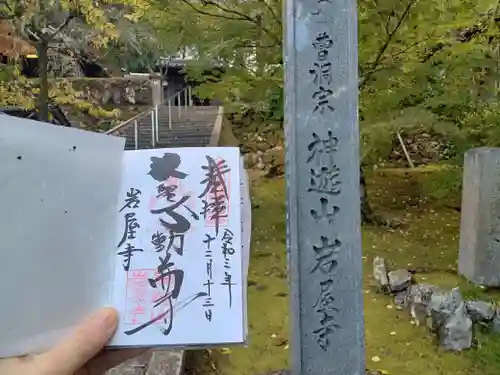 奉拝
令和三年
十二月十三日
大聖不動尊
岩屋寺
曹洞宗
神遊山
岩屋寺